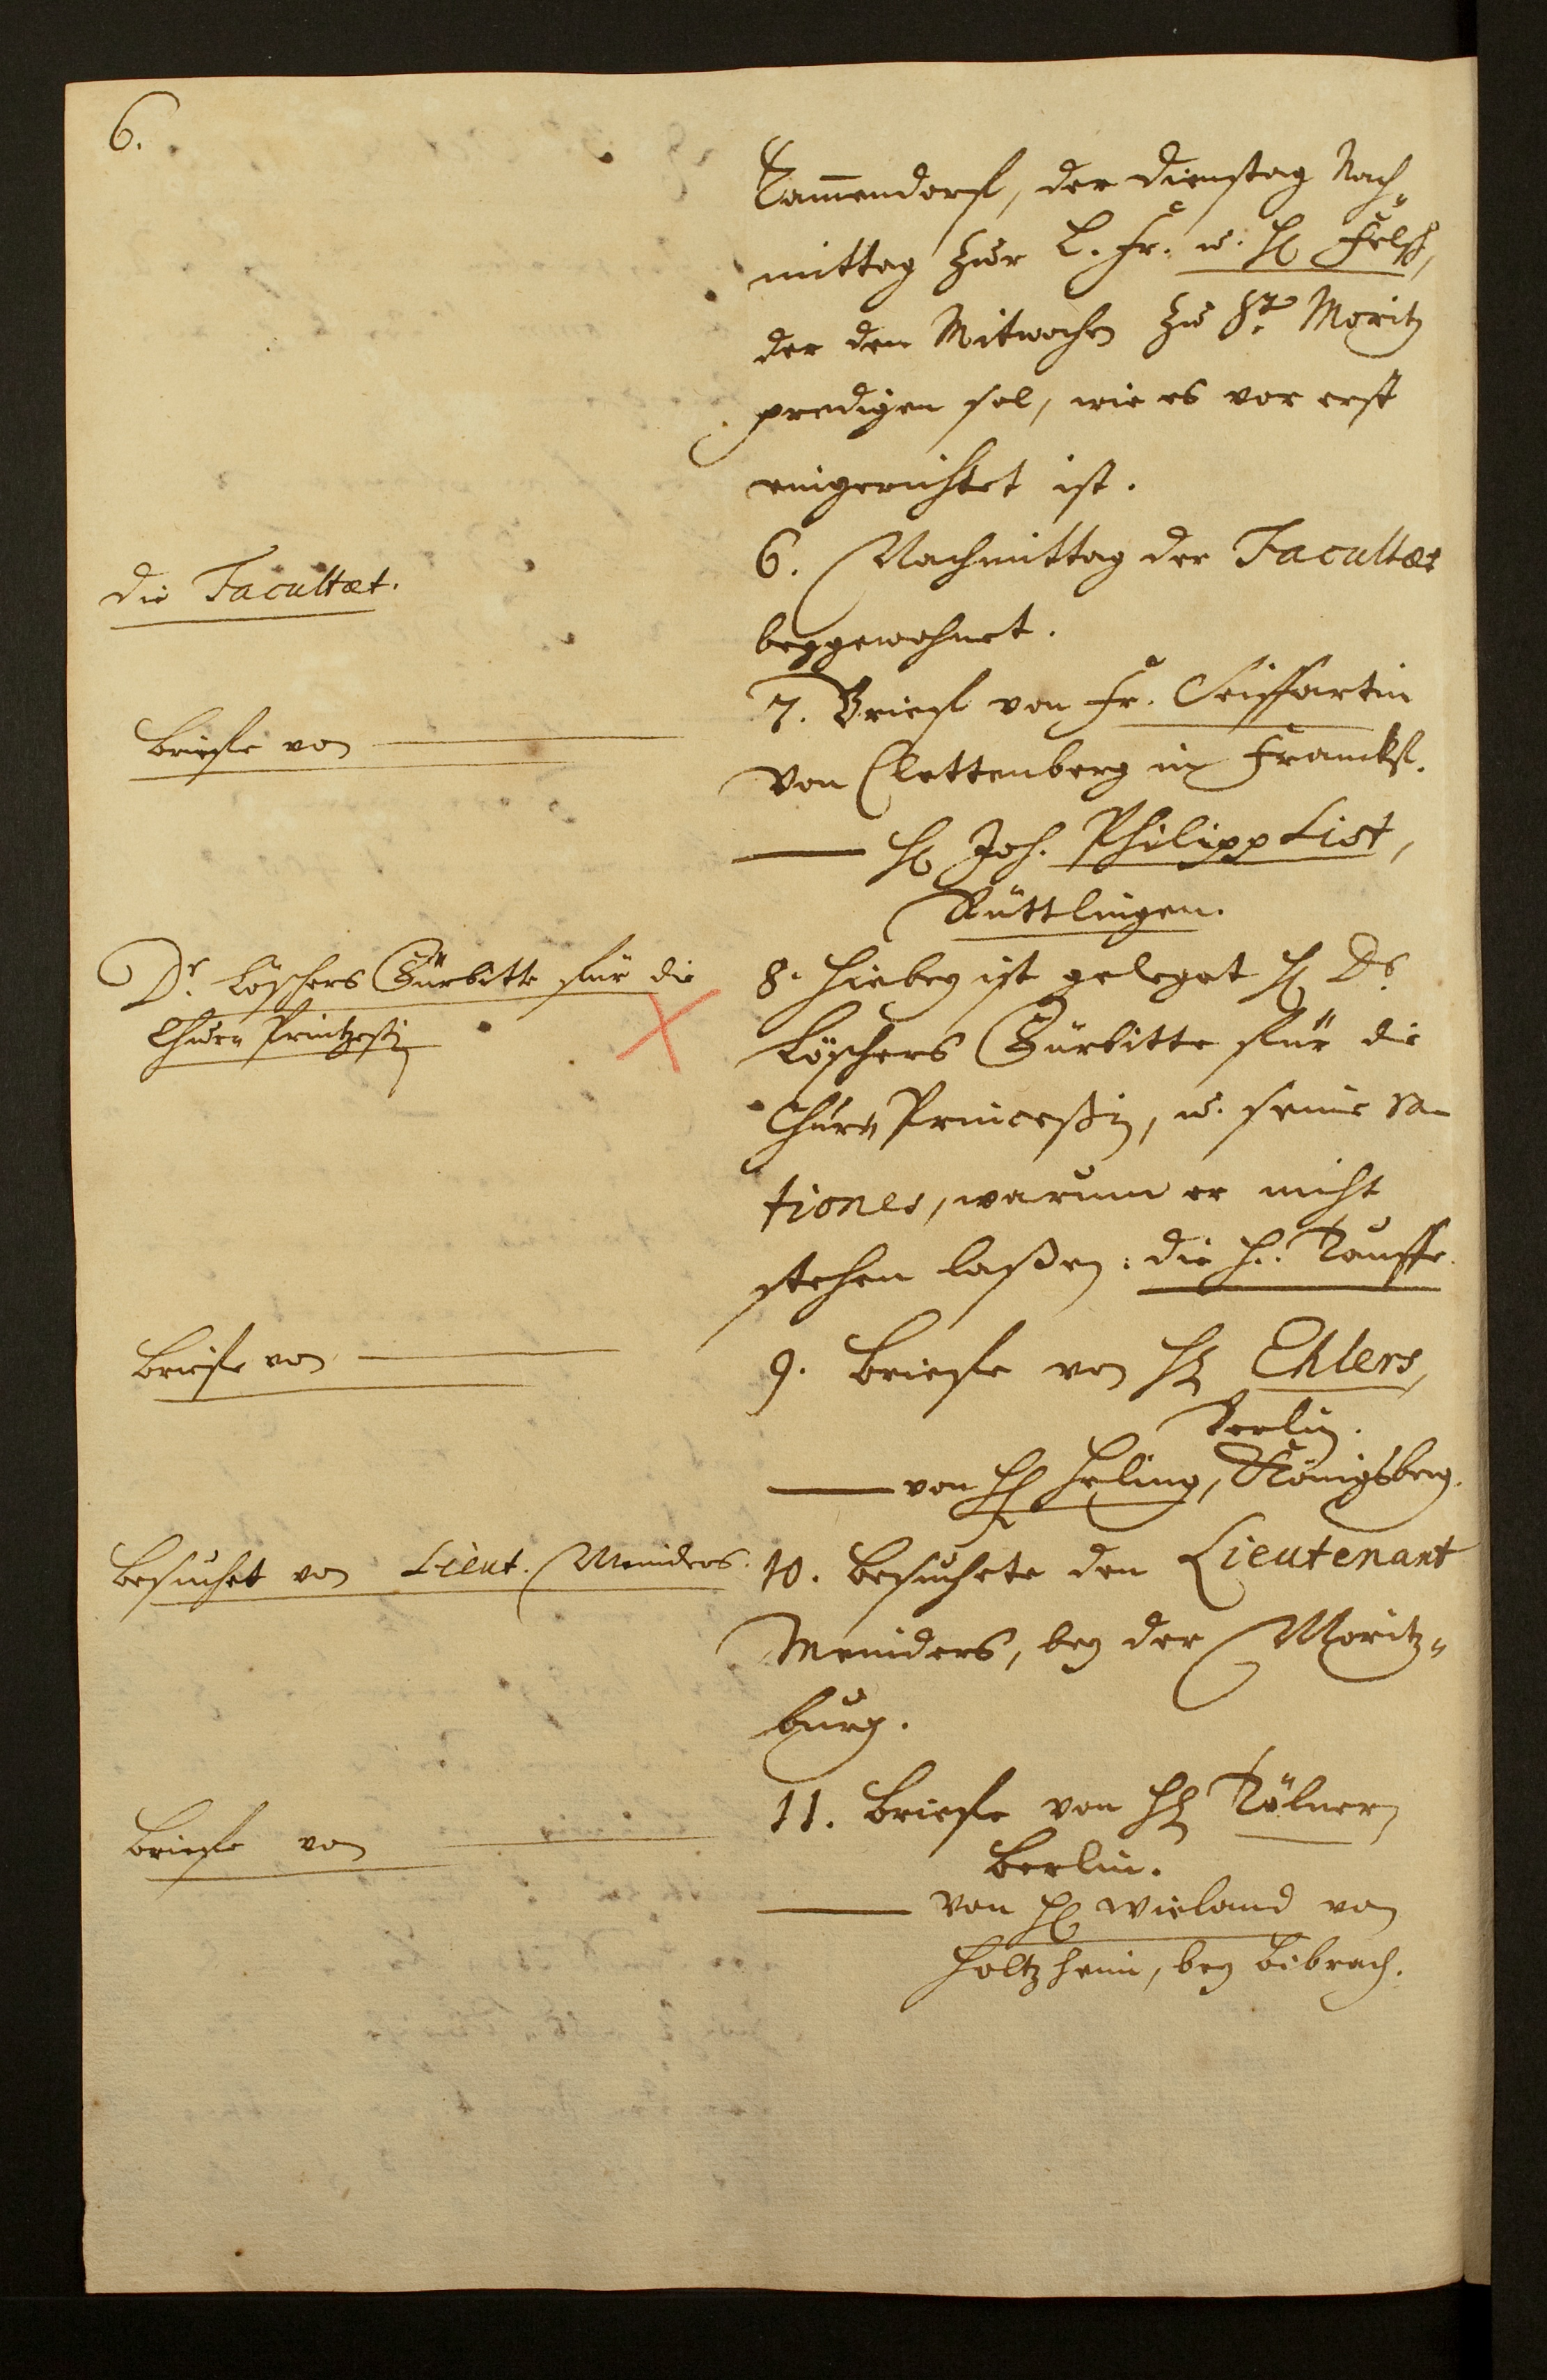 6.
Tammendorf, der Dienstag Nach-
mittag zur L. Fr. u. H. Felsch,
der den Mitwochen zu St. Moritz
predigen sol, wie es vor erst
eingerichtet ist.
die Facultæt.
6. Nachmittag der Facultæt
beygewohnet.
Briefe von
7. Brief von Fr. Seiffartin
von Clettenberg in Franckf.
H. Joh. Philipp List,
Tüttlingen.
Dr. Löschers Fürbitte für die
Chur Printzeßin
8. Hiebey ist geleget H. D.
Löschers Fürbitte für die
Chur Princeßin, u. seine ra-
tiones, warum er nicht
stehen laßen: die H. Tauffe.
Briefe von
9. Briefe von H. Ehlers,
Berlin.
von H. Heling, Königsberg.
Besuchet von Lieut. Meinders.
10. Besuchete den Lieutenant
Meinders, bey der Moritz-
burg.
Briefe von
11. Briefe von H. Cölner,
Berlin.
von H. Wieland von
Holtzheim, bey Bibrach.